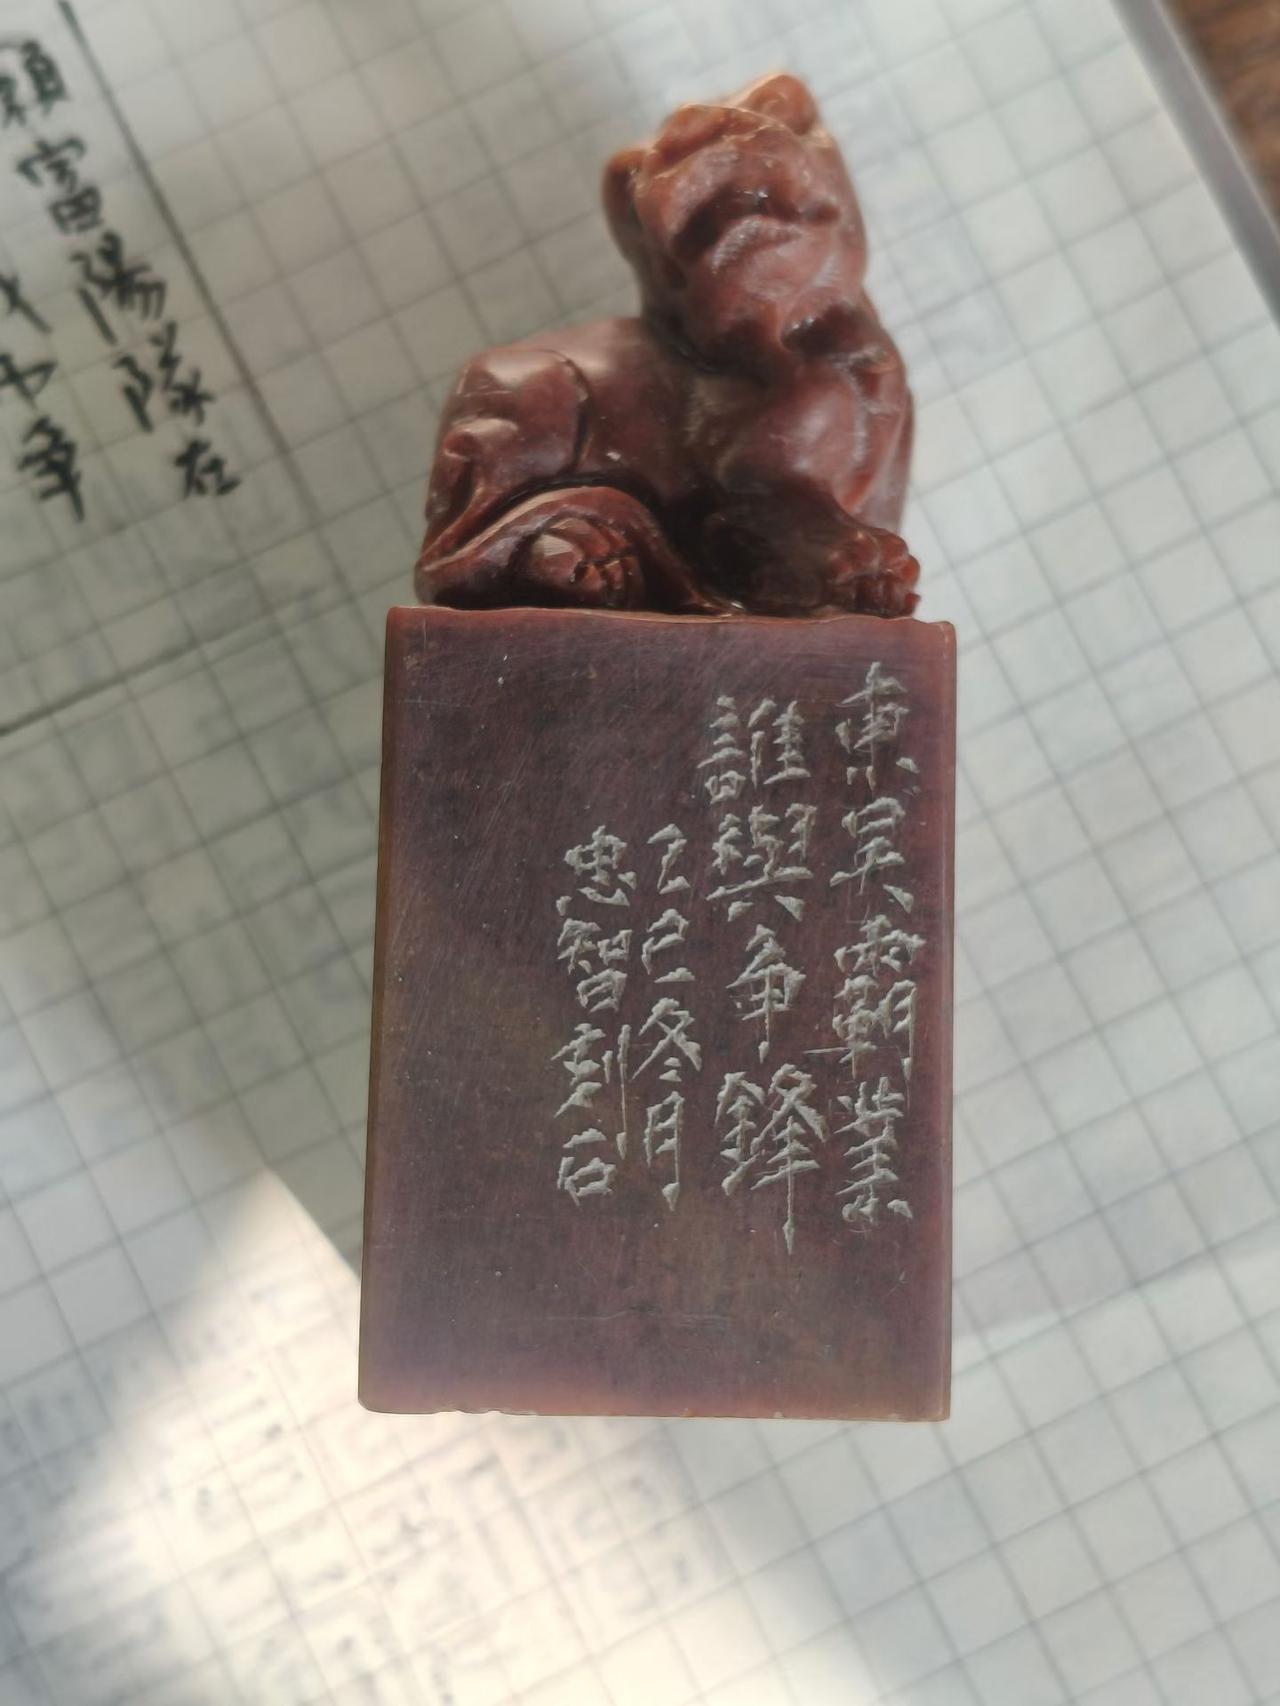 東吳霸業
誰與争鋒
乙巳冬月
忠智刻石
富陽隊在
章